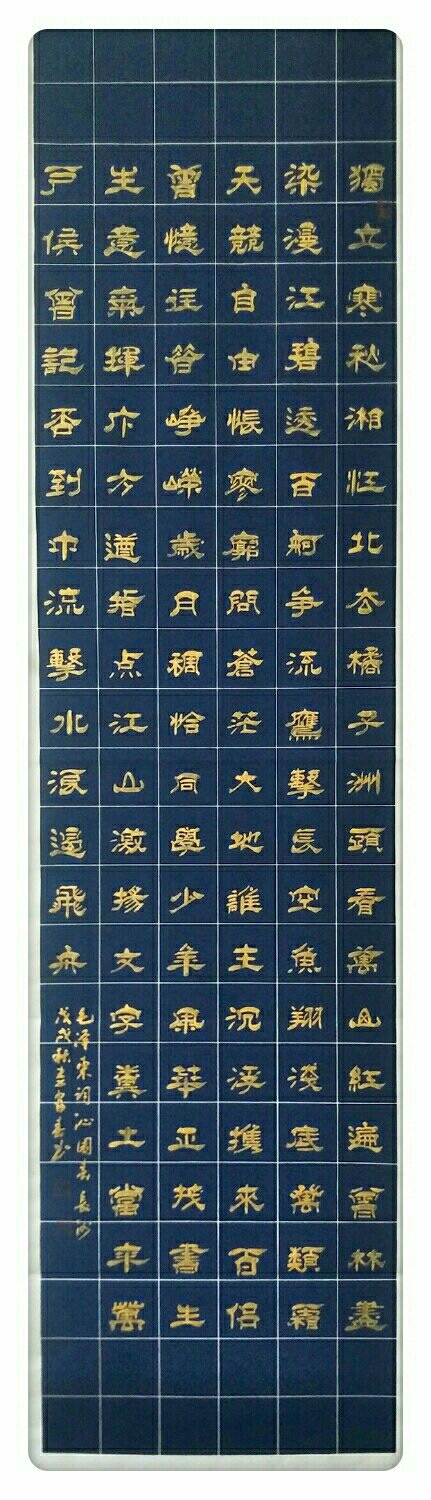 獨立寒秋湘江北去橘子洲頭看萬山紅遍曾林盡
染漫江碧透百舸争流鷹擊長空魚翔淺底萬類霜
天競自由悵寥廓問蒼茫大地誰主沉浮攜來百侣
曾憶往昔崢嶸歲月稠恰同學少年風華正茂書生
生意氣揮斥方遒指点江山激揚文字糞土當年萬
戶侯曾記否到中流擊水浪遏飛舟
毛澤東詞沁園春長沙
戊戌秋